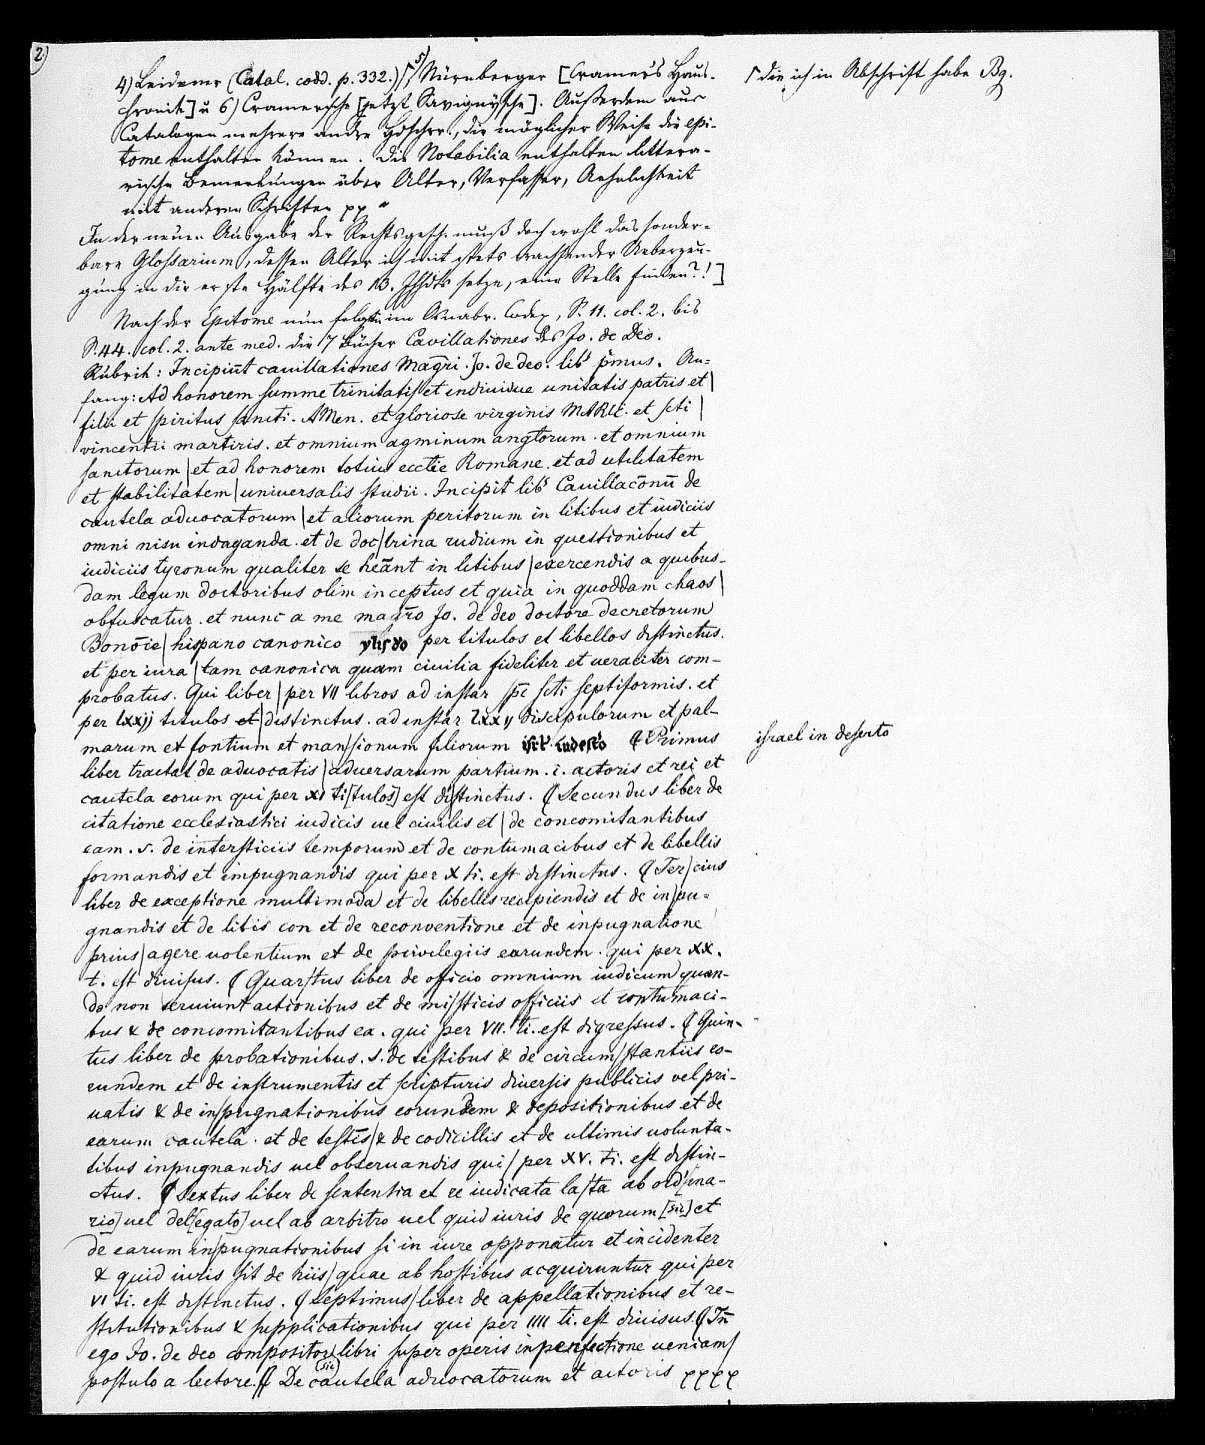 2)
4) Leidener (Catal. codd. p. 332.) 5) Nürnberger [Cramer's Haus-
chronik] u 6) Cramersche [jetzt Savignysche]. Außerdem aus
Catalogen mehrere andre Hdschrr., die möglicher Weise die epi-
tome enthalten können. Die Notabilia enthalten littera-
rische Bemerkungen über Alter, Verfasser, Aehnlichkeit
mit anderen Schriften xx "
die ich in Abschrift habe Bg.
In der neuen Ausgabe der Rechtsgesch. muß doch wohl das sonder-
bare Glossarium, dessen Alter ich mit stets wachsender Ueberzeu-
gung in die erste Hälfte des 13. Jhhdts setze, eine Stelle finden?!]
Nach der Epitome nun folgen im Osnabr. Codex, S. 11. col. 2. bis
S. 44. col. 2. ante med. die 7 Bücher Cavillationes des Jo. de Deo.
Rubrik: Incipiūt cauillationes Magr̄i. Jo. de deo. lib' p̄mus. An-
fang: Ad honorem summe trinitatis et indiuidue unitatis patris et |
filii et spiritus sancti. AMen. et gloriose virginis MARIE. et sc̄ti |
vincentii martiris. et omnium agminum angłorum. et omnium
sanctorum | et ad honorem totius eccłie Romane. et ad utilitatem
et stabilitatem | uniuersalis studii. Incipit lib' Cauillac̄onū de
cautela aduocatorum | et aliorum peritorum in litibus et iudiciis
omni nisu indaganda. et de doc | trina rudium in questionibus et
iudiciis tyronum qualiter se hēant in litibus | exercendis a quibus-
dam legum doctoribus olim inceptus et quia in quoddam chaos |
obfuscatur. et nunc a me mag̅ro Jo. de deo doctore decretorum
Bonōie | hispano canonico per titulos et libellos distinctus.
et per iura | tam canonica quam ciuilia fideliter et ueraciter com-
probatus. Qui liber | per VII libros ad instar sp̄c sc̄ti septiformis. et
per lxxij titulos et | distinctus. ad instar lxxij discipulorum et pal-
marum et fontium et man | sionum filiorum isrł' indesto ¶ Primus
israel in deserto
liber tractat de aduocatis | aduersarum partium. i. actoris et rei et
cautela eorum qui per XI ti[tulos] est distinctus. ¶ Secundus liber de
citatione ecclesiastici iudicis uel ciuilis et | de concomitantibus
eam. s. de intersticiis temporum et de contumacibus et de libellis
formandis et impugnandis qui per X ti. est distinctus. ¶ Ter | cius
liber de exceptione multimoda et de libellis recipiendis et de in | pu-
gnandis et de litis con et de reconventione et de inpugnatione
prius | agere uolentium et de priuilegiis earundem. qui per XX.
t. est diuisus. ¶ Quar | tus liber de officio omnium iudicum quan-
do non seruiunt actionibus et de mi | sticis officiis et contumaci-
bus & de concomitantibus ea. qui per VII. ti. est digressus. ¶ Quin-
tus liber de probationibus. s. de testibus & de circum | stantiis eo-
rundem et de instrumentis et scripturis diuersis publicis vel pri-
uatis & de in | pugnationibus eorundem & depositionibus et de
earum cautela. et de test̄is | & de codicillis et de ultimis uolunta-
tibus inpugnandis uel obseruandis qui | per XV. ti. est distin-
ctus. ¶ Sextus liber de sententia et re iudicata la | ta ab ord[ina-
rio] uel del[egato] uel ab arbitro uel quid iuris de quorum [sic] et
de earum in | pugnationibus si in iure opponatur et incidenter
& quid iuris sit de hiis | quae ab hostibus acquiruntur qui per
VI ti. est distinctus. ¶ Septimus | liber de appellationibus et re-
stitutionibus & supplicationibus qui per IIII ti. est diuisus ¶ In̄
ego Jo. de deo compositor libri super operis inperfectione ueniam |
postulo a lectore. ¶ De (sic) cautela aduocatorum et actoris xxxx